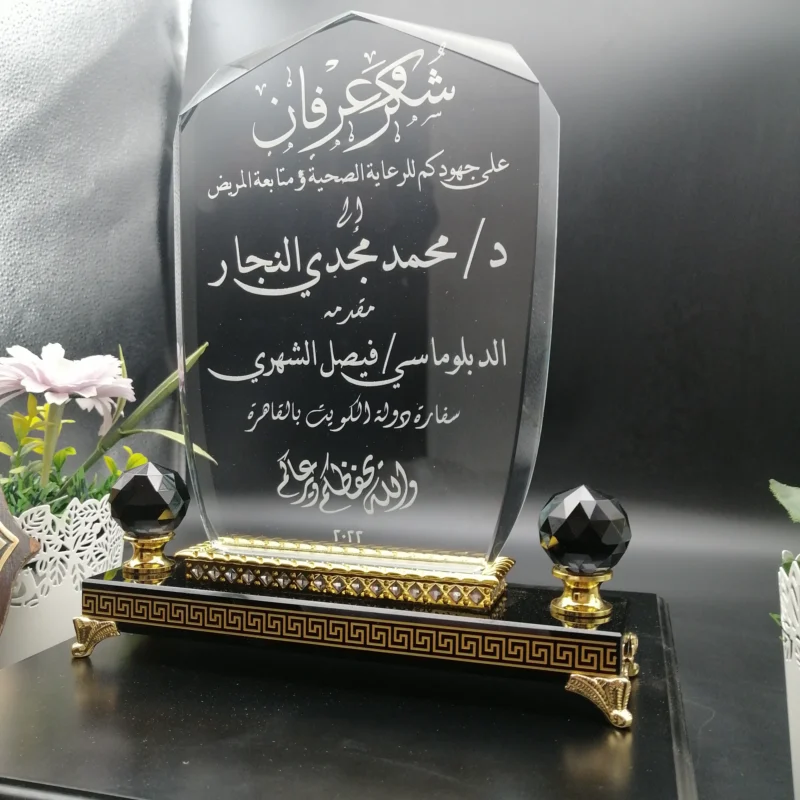 شكر وعرفان
على جهودكم للرعاية الصحية ومتابعة المريض
إلى
د/ محمد مجدي النجار
مقدمه
الدبلوماسي/ فيصل الشهري
سفارة دولة الكويت بالقاهرة
والله يحفظكم ويرعاكم
٢٠٢٢